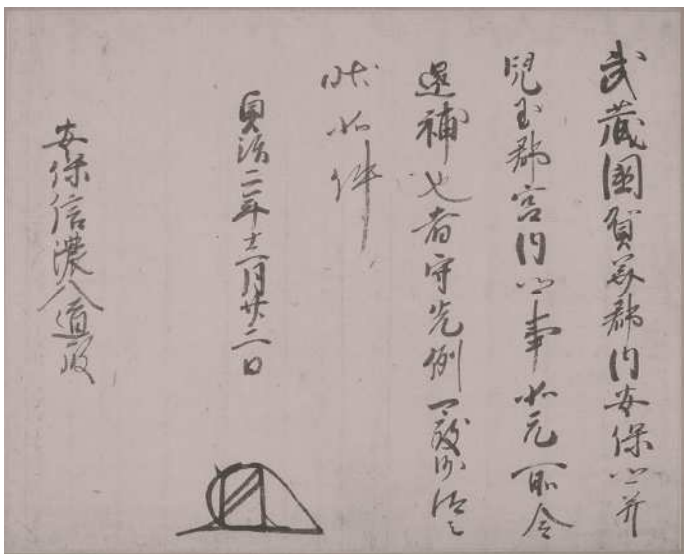 武蔵國賀美郡内安保郷并
児玉郡宮内郷事如元所令
還補也者守先例可致沙汰之
状如件
貞治二年十二月廿二日
安保信濃入道殿